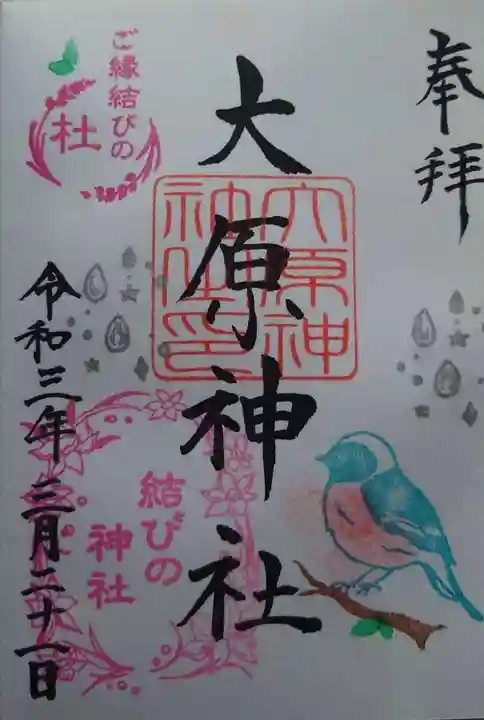 奉拝
大原神社
大原神
社印
ご縁結びの
杜
結びの
神社
令和三年三月二十一日